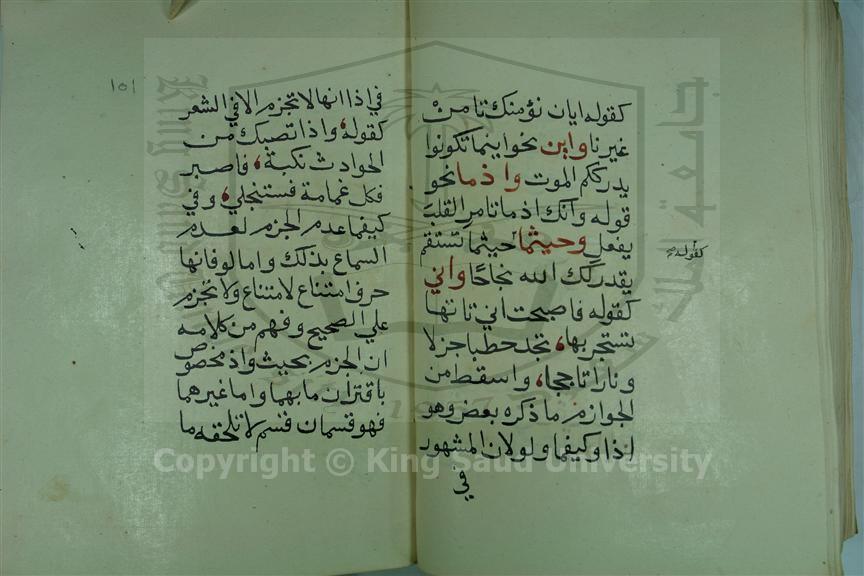 كقوله ايان نؤمنك تامن
غيرنا واين نحو اينما تكونوا
يدرككم الموت واذما نحو
قوله وانك اذما تامر القلب
يفعل وحيثما حيثما تستقم
كقوله
يقدر لك الله نجاحا واني
كقوله فاصبحت اني تاتها
تستجر بها، تجد حطبا جزلا
ونارا تاججا، واسقط من
الجوازم ما ذكره بعض وهو
اذا وكيفما ولو لان المشهور
في
١٥١
في اذا انها لا تجزم الا في الشعر
كقوله، واذا تصبك من
الحوادث نكبة، فاصبر
فكل غمامة فستنجلي، وفي
كيفما عدم الجزم لعدم
السماع بذلك واما لو فانها
حرف امتناع لامتناع ولا تجزم
علي الصحيح وفهم من كلامه
ان الجزم بحيث واذ مخصوص
باقتران ما بهما واما غيرهما
فهو قسمان قسم لا تلحقه ما
Copyright © King Saud University
1957